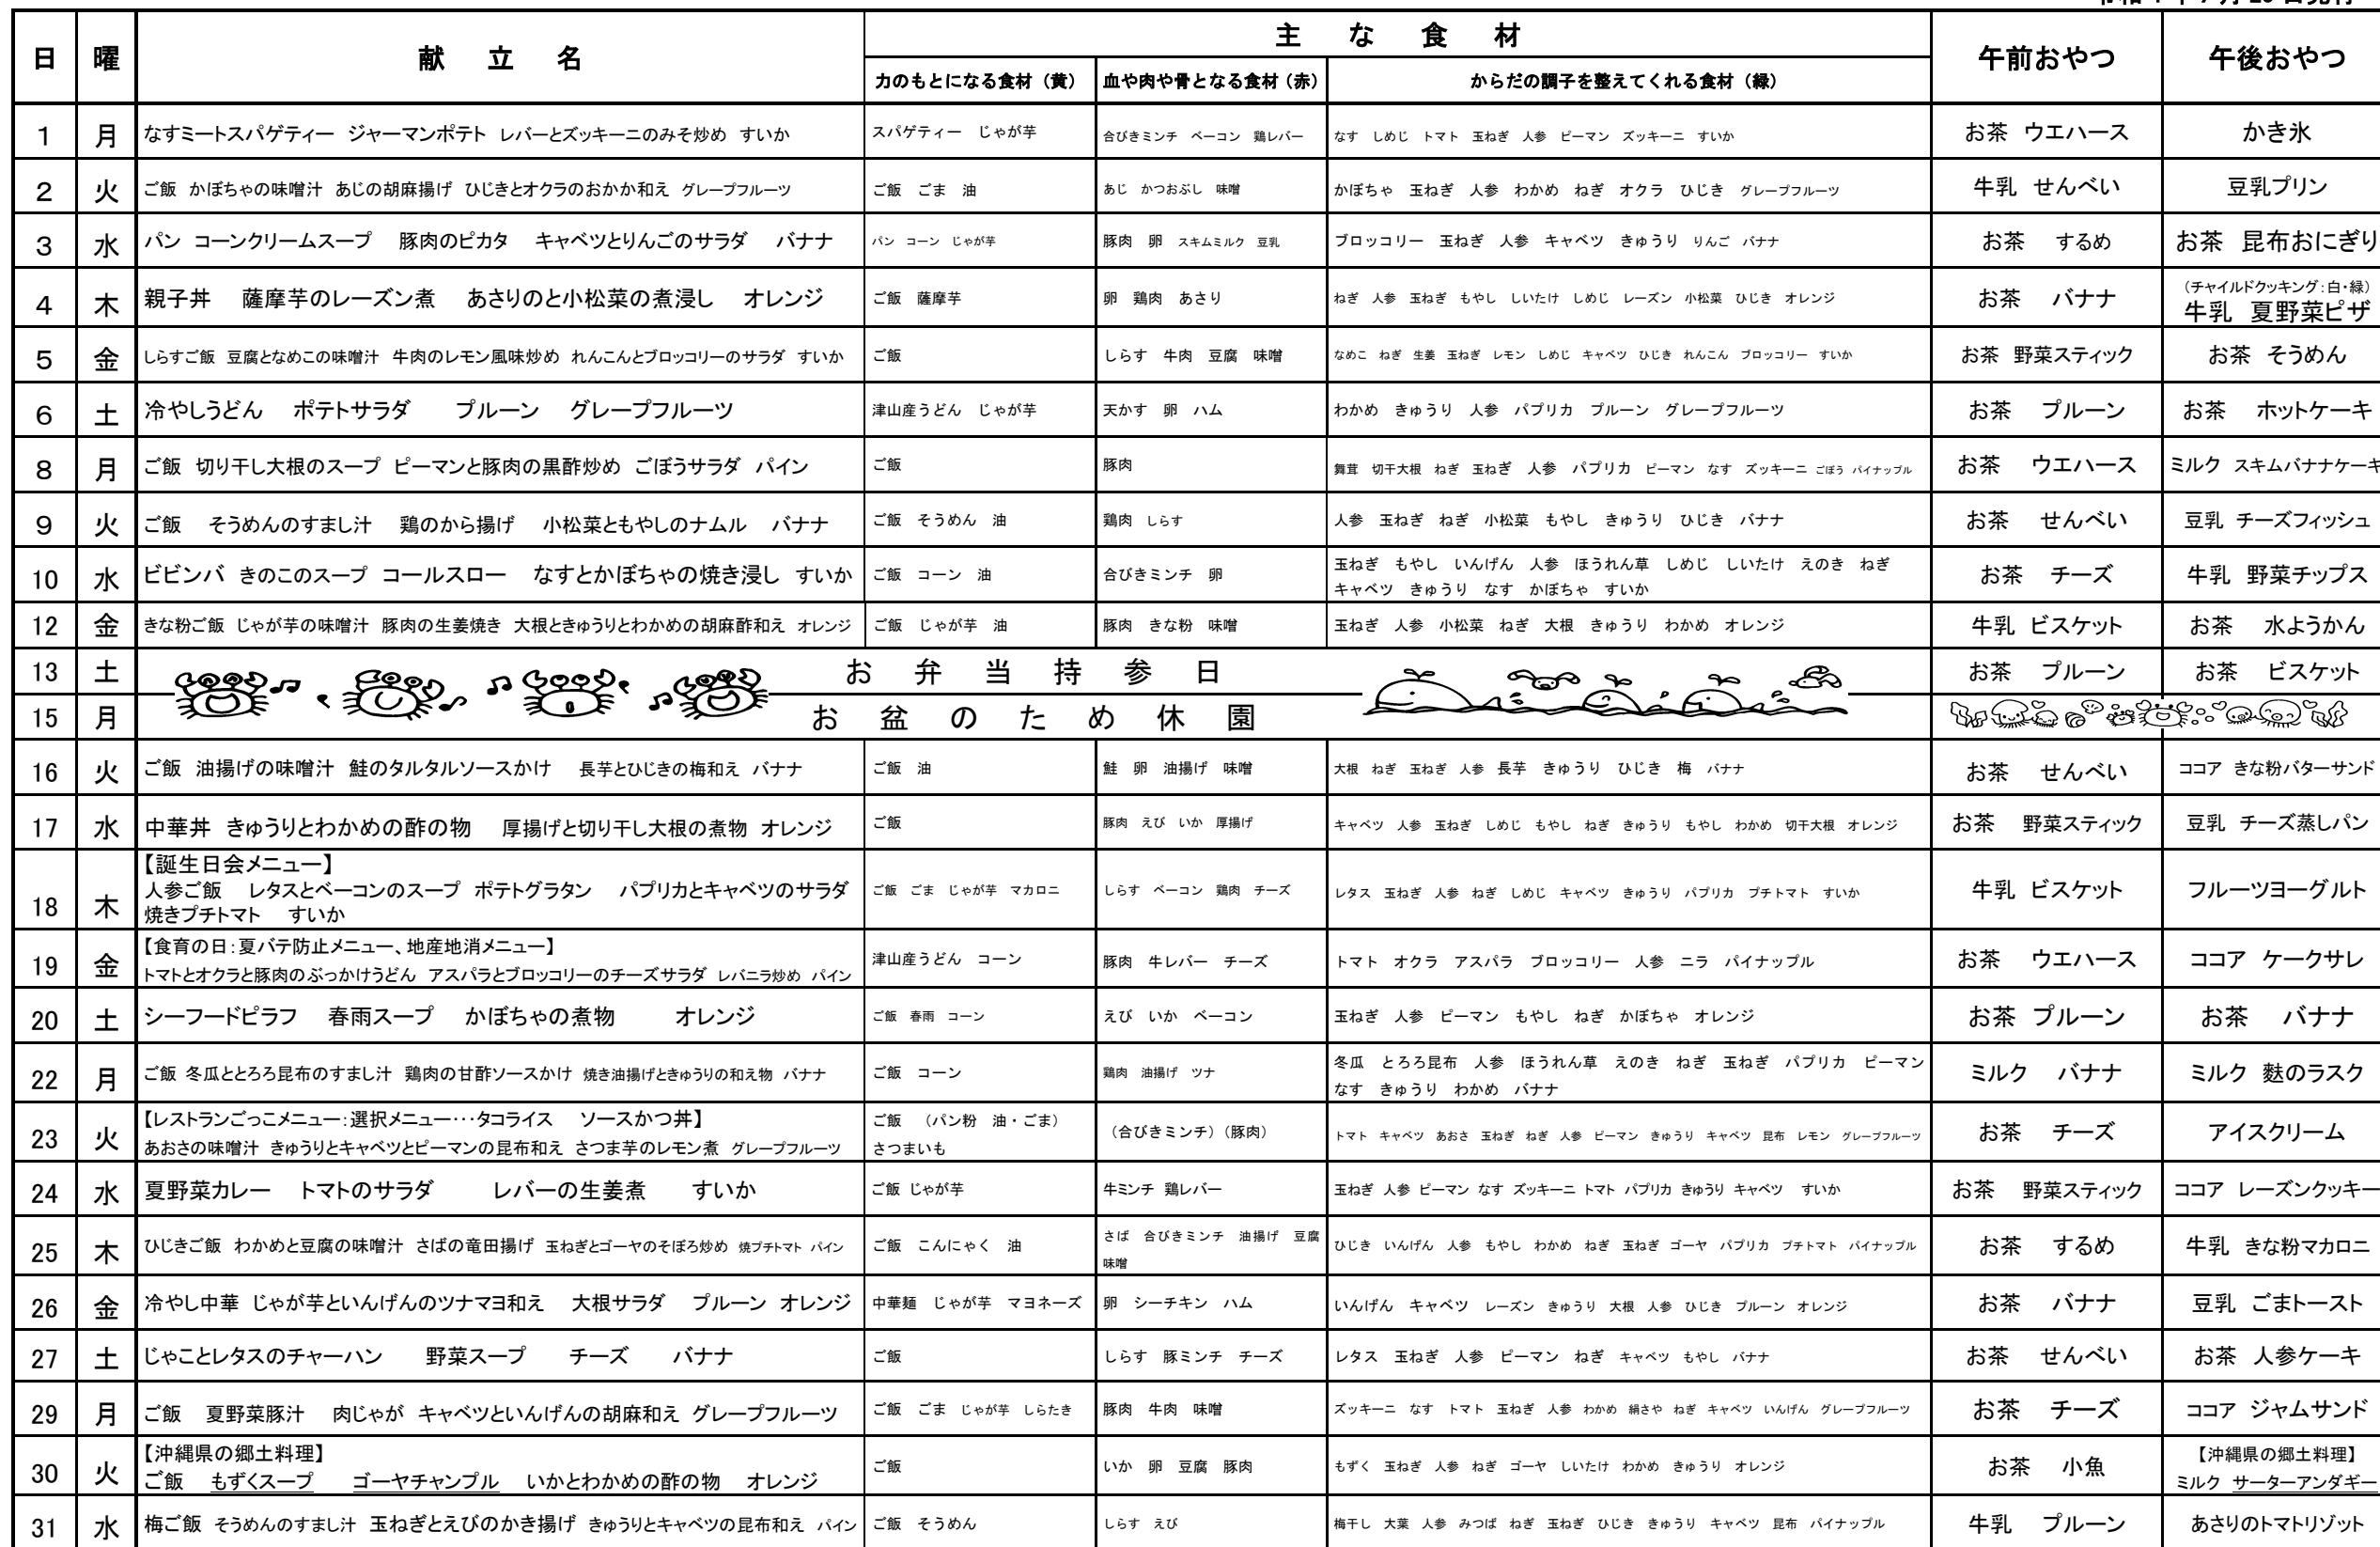 日 曜 献立名 主な食材 午前おやつ 午後おやつ
力のもとになる食材（黄） 血や肉や骨となる食材（赤） からだの調子を整えてくれる食材（緑）
1 月 なすミートスパゲティー ジャーマンポテト レバーとズッキーニのみそ炒め すいか スパゲティー じゃが芋 合びきミンチ ベーコン 鶏レバー なす しめじ トマト 玉ねぎ 人参 ピーマン ズッキーニ すいか お茶 ウエハース かき氷
2 火 ご飯 かぼちゃの味噌汁 あじの胡麻揚げ ひじきとオクラのおかか和え グレープフルーツ ご飯 ごま 油 あじ かつおぶし 味噌 かぼちゃ 玉ねぎ 人参 わかめ ねぎ オクラ ひじき グレープフルーツ 牛乳 せんべい 豆乳プリン
3 水 パン コーンクリームスープ 豚肉のピカタ キャベツとりんごのサラダ バナナ パン コーン じゃが芋 豚肉 卵 スキムミルク 豆乳 ブロッコリー 玉ねぎ 人参 キャベツ きゅうり りんご バナナ お茶 するめ お茶 昆布おにぎり
4 木 親子丼 薩摩芋のレーズン煮 あさりのと小松菜の煮浸し オレンジ ご飯 薩摩芋 卵 鶏肉 あさり ねぎ 人参 玉ねぎ もやし しいたけ しめじ レーズン 小松菜 ひじき オレンジ お茶 バナナ （チャイルドクッキング：白・緑）
牛乳 夏野菜ピザ
5 金 しらすご飯 豆腐となめこの味噌汁 牛肉のレモン風味炒め れんこんとブロッコリーのサラダ すいか ご飯 しらす 牛肉 豆腐 味噌 なめこ ねぎ 生姜 玉ねぎ レモン しめじ キャベツ ひじき れんこん ブロッコリー すいか お茶 野菜スティック お茶 そうめん
6 土 冷やしうどん ポテトサラダ プルーン グレープフルーツ 津山産うどん じゃが芋 天かす 卵 ハム わかめ きゅうり 人参 パプリカ プルーン グレープフルーツ お茶 プルーン お茶 ホットケーキ
8 月 ご飯 切り干し大根のスープ ピーマンと豚肉の黒酢炒め ごぼうサラダ パイン ご飯 豚肉 舞茸 切干大根 ねぎ 玉ねぎ 人参 パプリカ ピーマン なす ズッキーニ ごぼう パイナップル お茶 ウエハース ミルク スキムバナナケーキ
9 火 ご飯 そうめんのすまし汁 鶏のから揚げ 小松菜ともやしのナムル バナナ ご飯 そうめん 油 鶏肉 しらす 人参 玉ねぎ ねぎ 小松菜 もやし きゅうり ひじき バナナ お茶 せんべい 豆乳 チーズフィッシュ
10 水 ビビンバ きのこのスープ コールスロー なすとかぼちゃの焼き浸し すいか ご飯 コーン 油 合びきミンチ 卵 玉ねぎ もやし いんげん 人参 ほうれん草 しめじ しいたけ えのき ねぎ お茶 チーズ 牛乳 野菜チップス
キャベツ きゅうり なす かぼちゃ すいか
12 金 きな粉ご飯 じゃが芋の味噌汁 豚肉の生姜焼き 大根ときゅうりとわかめの胡麻酢和え オレンジ ご飯 じゃが芋 油 豚肉 きな粉 味噌 玉ねぎ 人参 小松菜 ねぎ 大根 きゅうり わかめ オレンジ 牛乳 ビスケット お茶 水ようかん
13 土 お弁当持参日 お茶 プルーン お茶 ビスケット
15 月 お盆のため休園
16 火 ご飯 油揚げの味噌汁 鮭のタルタルソースかけ 長芋とひじきの梅和え バナナ ご飯 油 鮭 卵 油揚げ 味噌 大根 ねぎ 玉ねぎ 人参 長芋 きゅうり ひじき 梅 バナナ お茶 せんべい ココア きな粉バターサンド
17 水 中華丼 きゅうりとわかめの酢の物 厚揚げと切り干し大根の煮物 オレンジ ご飯 豚肉 えび いか 厚揚げ キャベツ 人参 玉ねぎ しめじ もやし ねぎ きゅうり もやし わかめ 切干大根 オレンジ お茶 野菜スティック 豆乳 チーズ蒸しパン
【誕生日会メニュー】
18 木 人参ご飯 レタスとベーコンのスープ ポテトグラタン パプリカとキャベツのサラダ ご飯 ごま じゃが芋 マカロニ しらす ベーコン 鶏肉 チーズ レタス 玉ねぎ 人参 ねぎ しめじ キャベツ きゅうり パプリカ プチトマト すいか 牛乳 ビスケット フルーツヨーグルト
焼きプチトマト すいか
【食育の日：夏バテ防止メニュー、地産地消メニュー】
19 金 トマトとオクラと豚肉のぶっかけうどん アスパラとブロッコリーのチーズサラダ レバニラ炒め パイン 津山産うどん コーン 豚肉 牛レバー チーズ トマト オクラ アスパラ ブロッコリー 人参 ニラ パイナップル お茶 ウエハース ココア ケークサレ
20 土 シーフードピラフ 春雨スープ かぼちゃの煮物 オレンジ ご飯 春雨 コーン えび いか ベーコン 玉ねぎ 人参 ピーマン もやし ねぎ かぼちゃ オレンジ お茶 プルーン お茶 バナナ
22 月 ご飯 冬瓜ととろろ昆布のすまし汁 鶏肉の甘酢ソースかけ 焼き油揚げときゅうりの和え物 バナナ ご飯 コーン 鶏肉 油揚げ ツナ 冬瓜 とろろ昆布 人参 ほうれん草 えのき ねぎ 玉ねぎ パプリカ ピーマン ミルク バナナ ミルク 麩のラスク
なす きゅうり わかめ バナナ
【レストランごっこメニュー：選択メニュー･･･タコライス ソースかつ丼】 ご飯 （パン粉 油・ごま）
23 火 あおさの味噌汁 きゅうりとキャベツとピーマンの昆布和え さつま芋のレモン煮 グレープフルーツ さつまいも （合びきミンチ）（豚肉） トマト キャベツ あおさ 玉ねぎ ねぎ 人参 ピーマン きゅうり キャベツ 昆布 レモン グレープフルーツ お茶 チーズ アイスクリーム
24 水 夏野菜カレー トマトのサラダ レバーの生姜煮 すいか ご飯 じゃが芋 牛ミンチ 鶏レバー 玉ねぎ 人参 ピーマン なす ズッキーニ トマト パプリカ きゅうり キャベツ すいか お茶 野菜スティック ココア レーズンクッキー
25 木 ひじきご飯 わかめと豆腐の味噌汁 さばの竜田揚げ 玉ねぎとゴーヤのそぼろ炒め 焼プチトマト パイン ご飯 こんにゃく 油 さば 合びきミンチ 油揚げ 豆腐 ひじき いんげん 人参 もやし わかめ ねぎ 玉ねぎ ゴーヤ パプリカ プチトマト パイナップル お茶 するめ 牛乳 きな粉マカロニ
味噌
26 金 冷やし中華 じゃが芋といんげんのツナマヨ和え 大根サラダ プルーン オレンジ 中華麺 じゃが芋 マヨネーズ 卵 シーチキン ハム いんげん キャベツ レーズン きゅうり 大根 人参 ひじき プルーン オレンジ お茶 バナナ 豆乳 ごまトースト
27 土 じゃことレタスのチャーハン 野菜スープ チーズ バナナ ご飯 しらす 豚ミンチ チーズ レタス 玉ねぎ 人参 ピーマン ねぎ キャベツ もやし バナナ お茶 せんべい お茶 人参ケーキ
29 月 ご飯 夏野菜豚汁 肉じゃが キャベツといんげんの胡麻和え グレープフルーツ ご飯 ごま じゃが芋 しらたき 豚肉 牛肉 味噌 ズッキーニ なす トマト 玉ねぎ 人参 わかめ 絹さや ねぎ キャベツ いんげん グレープフルーツ お茶 チーズ ココア ジャムサンド
【沖縄県の郷土料理】 【沖縄県の郷土料理】
30 火 ご飯 もずくスープ ゴーヤチャンプル いかとわかめの酢の物 オレンジ ご飯 いか 卵 豆腐 豚肉 もずく 玉ねぎ 人参 ねぎ ゴーヤ しいたけ わかめ きゅうり オレンジ お茶 小魚 ミルク サーターアンダギー
31 水 梅ご飯 そうめんのすまし汁 玉ねぎとえびのかき揚げ きゅうりとキャベツの昆布和え パイン ご飯 そうめん しらす えび 梅干し 大葉 人参 みつば ねぎ 玉ねぎ ひじき きゅうり キャベツ 昆布 パイナップル 牛乳 プルーン あさりのトマトリゾット